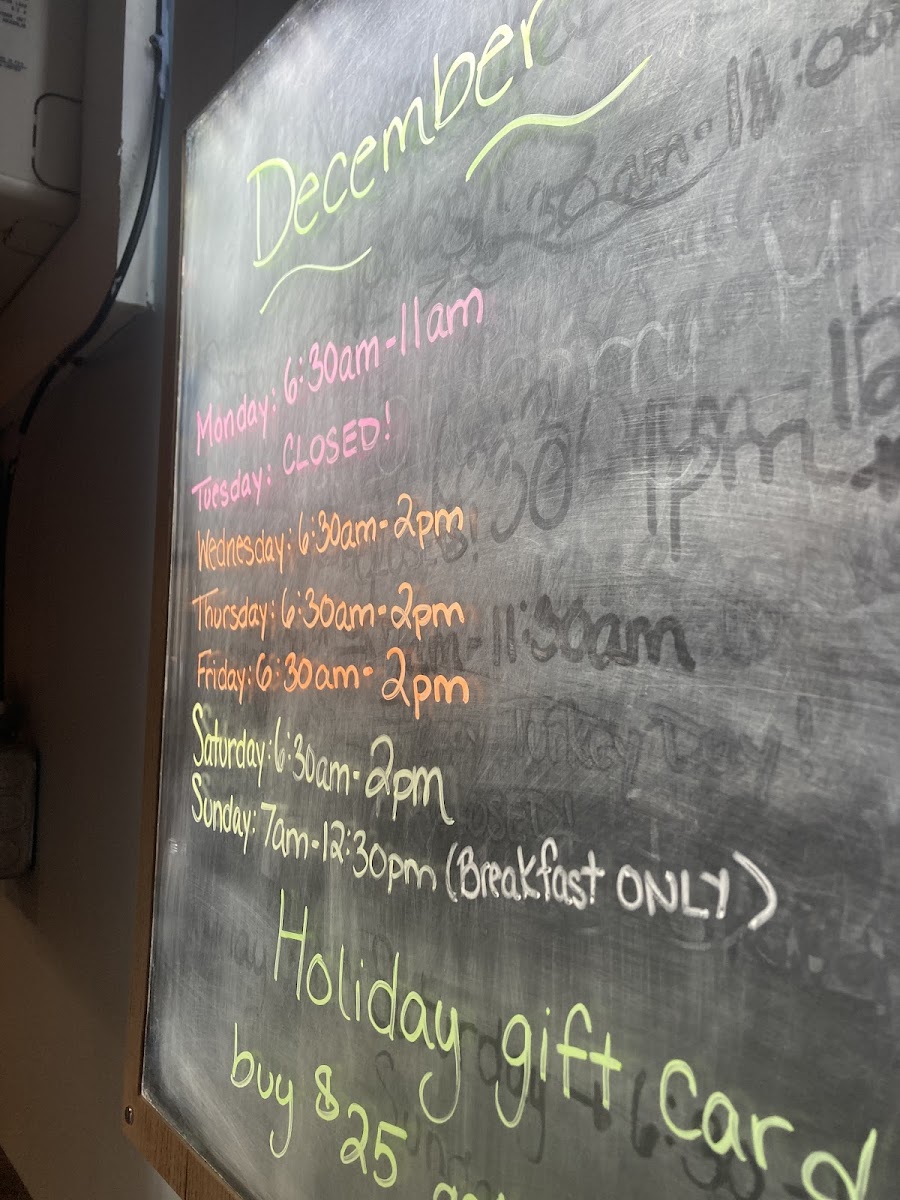 December
Monday: 6:30am-11am
Tuesday: CLOSED!
Wednesday: 6:30am-2pm
Thursday: 6:30am-2pm
Friday: 6:30am-2pm
Saturday: 6:30am-2pm
Sunday: 7am-12:30pm (Breakfast ONLY)
Holiday gift card
buy $25